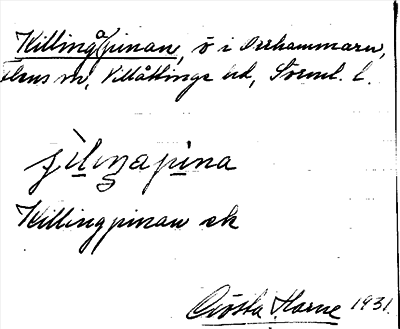 Killingapinan, ö i Orrhammarn,
Flens sn, Villåttinge hd, Sörml. l.
Killingpinan ek
Gösta Harne 1931.